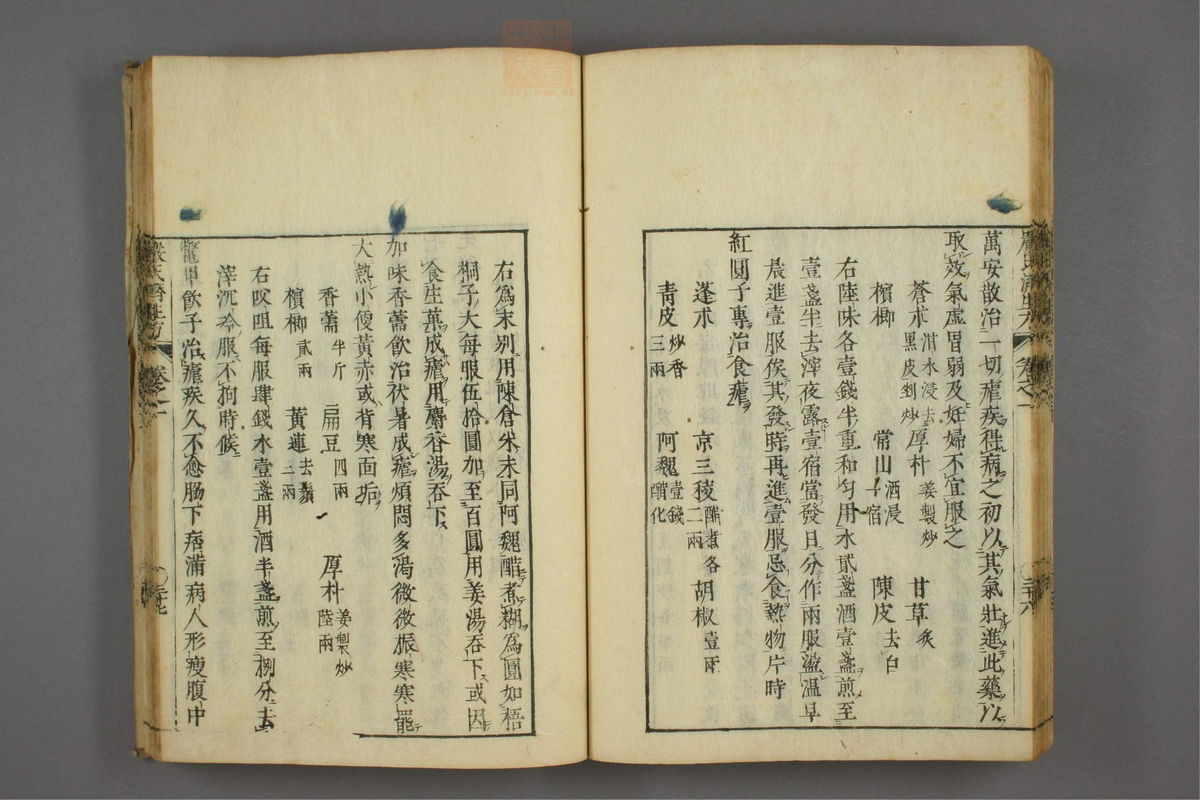 萬安散治一切瘧疾得病之初以其氣壯進此藥以
取效氣虛胃弱及妊婦不宜服之
蒼朮泔水浸去黑皮剉炒 厚朴姜製炒 甘草炙
檳榔 常山酒浸一宿 陳皮去白
右陸味各壹錢半重和勻用水貳盞酒壹盞煎至
壹盞半去滓夜露壹宿當發日分作兩服溫早
晨進壹服俟其發時再進壹服忌食熱物片時
紅圓子專治食瘧
蓬朮 京三稜醋煮各二兩 胡椒壹兩
青皮炒香三兩 阿魏壹錢醋化
右為末別用陳倉米末同阿魏醋煮糊為圓如梧
桐子大每服伍拾圓加至百圓用姜湯吞下或因
食生菓成瘧用麝香湯吞下
加味香薷飲治伏暑成瘧煩悶多渴微微振寒寒罷
大熱小便黃赤或背寒面垢
香薷半斤 扁豆四兩 厚朴姜製炒陸兩
檳榔貳兩 黃連去鬚二兩
右㕮咀每服肆錢水壹盞用酒半盞煎至捌分去
滓沉冷服不拘時候
鱉甲飲子治瘧疾久不愈腸下痞滿病人形瘦腹中
嚴氏濟生方 卷之一